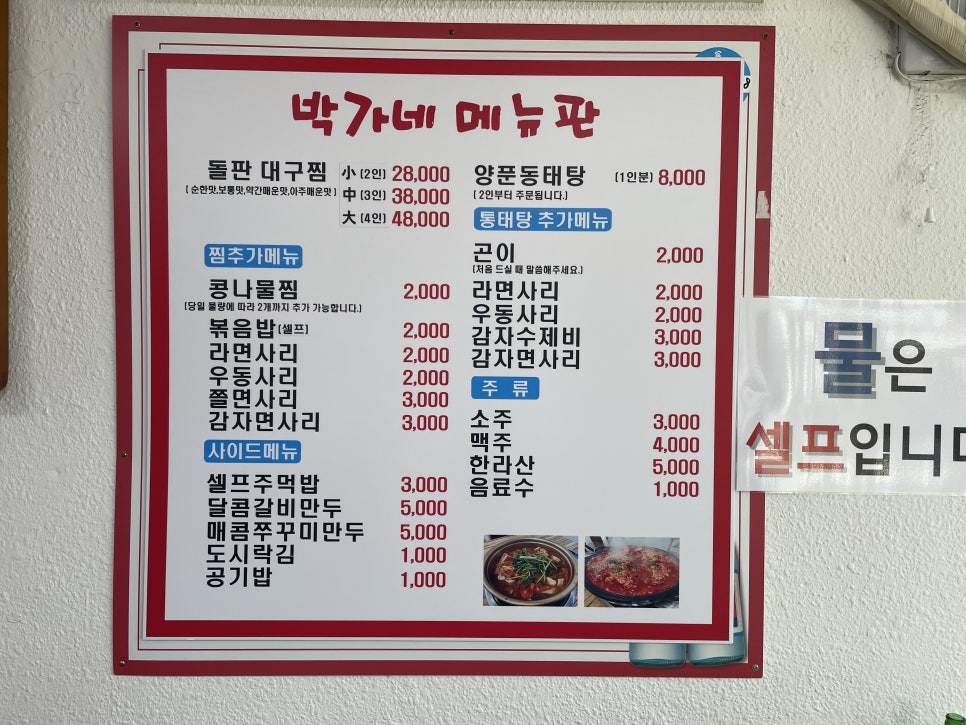 박가네 메뉴판
돌판 대구찜 小 (2인) 28,000
( 순한맛,보통맛,약간매운맛,아주매운맛 ) 中 (3인) 38,000
大 (4인) 48,000
찜추가메뉴
콩나물찜 2,000
(당일 물량에 따라 2개까지 추가 가능합니다.)
볶음밥(셀프) 2,000
라면사리 2,000
우동사리 2,000
쫄면사리 3,000
감자면사리 3,000
사이드메뉴
셀프주먹밥 3,000
달콤갈비만두 5,000
매콤쭈꾸미만두 5,000
도시락김 1,000
공기밥 1,000
양푼동태탕 (1인분) 8,000
( 2인부터 주문됩니다.)
통태탕 추가메뉴
곤이 2,000
(처음 드실 때 말씀해주세요.)
라면사리 2,000
우동사리 2,000
감자수제비 3,000
감자면사리 3,000
주 류
소주 3,000
맥주 4,000
한라산 5,000
음료수 1,000
물은
셀프입니다